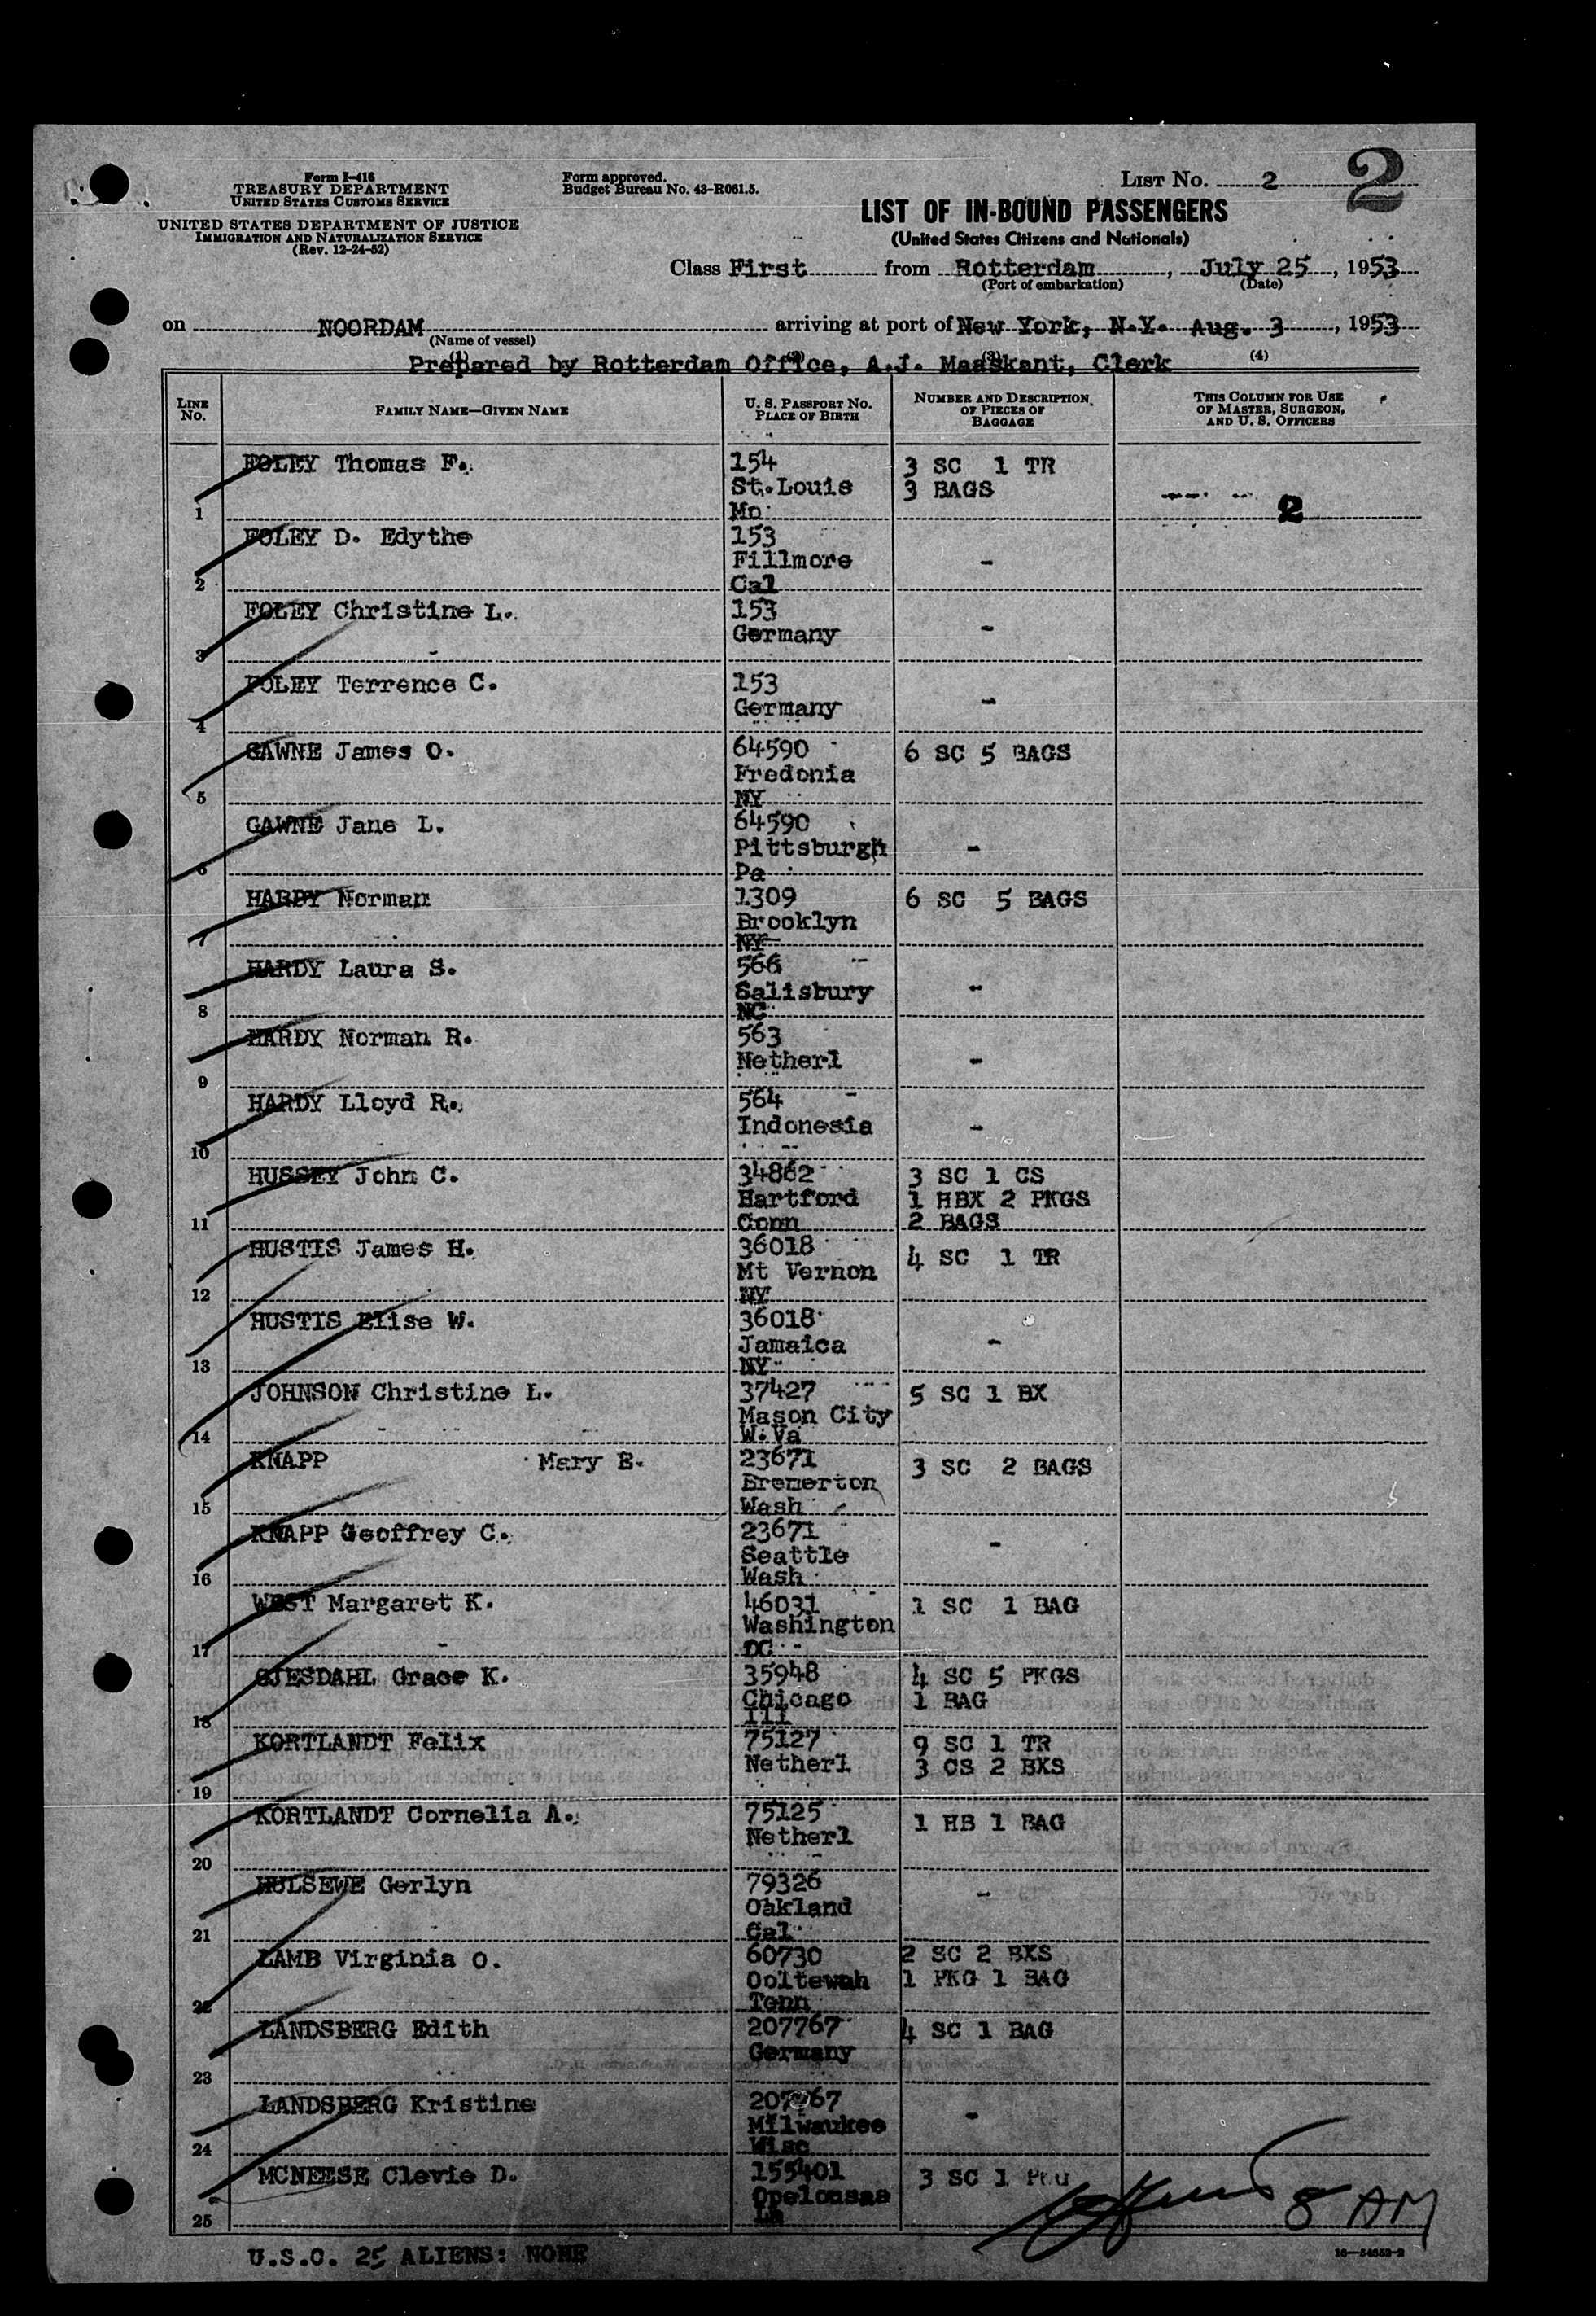 Form I-416
TREASURY DEPARTMENT
UNITED STATES CUSTOMS SERVICE
UNITED STATES DEPARTMENT OF JUSTICE
IMMIGRATION AND NATURALIZATION SERVICE
(Rev. 12-24-52)
Form approved.
Budget Bureau No. 43-R061.5.
LIST No. 2
2
LIST OF IN-BOUND PASSENGERS
(United States Citizens and Nationals)
Class First from Rotterdam, July 25, 1953
(Port of embarkation) (Date)
on NOORDAM arriving at port of New York, N.Y. Aug. 3, 1953
(Name of vessel)
(1) (2) (3) (4)
Prepared by Rotterdam Office, A.J. Maaskant, Clerk
LINE No. FAMILY NAME—GIVEN NAME U. S. PASSPORT NO. PLACE OF BIRTH NUMBER AND DESCRIPTION OF PIECES OF BAGGAGE THIS COLUMN FOR USE OF MASTER, SURGEON, AND U. S. OFFICERS
FOLEY Thomas F. 154 3 SC 1 TR
St.Louis 3 BAGS
1 Mo 2
FOLEY D. Edythe 153
Fillmore -
2 Cal
FOLEY Christine L. 153
Germany -
3
FOLEY Terrence C. 153
Germany -
4
GAWNE James O. 64590 6 SC 5 BAGS
Fredonia
5 NY
GAWNE Jane L. 64590
Pittsburgh -
6 Pa
HARDY Norman 1309 6 SC 5 BAGS
Brooklyn
7 NY
HARDY Laura S. 566
Salisbury -
8 NC
HARDY Norman R. 563
Netherl -
9
HARDY Lloyd R. 564
Indonesia -
10
HUSSEY John C. 34862 3 SC 1 CS
Hartford 1 HBX 2 PKGS
11 Conn 2 BAGS
HUSTIS James H. 36018 4 SC 1 TR
Mt Vernon
12 NY
HUSTIS Elise W. 36018
Jamaica -
13 NY
JOHNSON Christine L. 37427 5 SC 1 BX
Mason City
14 W.Va
KNAPP Mary E. 23671 3 SC 2 BAGS
Bremerton
15 Wash
KNAPP Geoffrey C. 23671
Seattle -
16 Wash
WEST Margaret K. 46031 1 SC 1 BAG
Washington
17 DC
GJESDAHL Grace K. 35948 4 SC 5 PKGS
Chicago 1 BAG
18 Ill
KORTLANDT Felix 75127 9 SC 1 TR
Netherl 3 CS 2 BXS
19
KORTLANDT Cornelia A. 75125 1 HB 1 BAG
Netherl
20
HULSEWE Gerlyn 79326
Oakland -
21 Cal
LAMB Virginia O. 60730 2 SC 2 BXS
Ooltewah 1 PKG 1 BAG
22 Tenn
LANDSBERG Edith 207767 4 SC 1 BAG
Germany
23
LANDSBERG Kristine 207767
Milwaukee -
24 Wisc
MCNEESE Clevie D. 155401 3 SC 1 PKG
Opelousas
25 La
8 AM
U.S.C. 25 ALIENS: NONE
16—54652-2